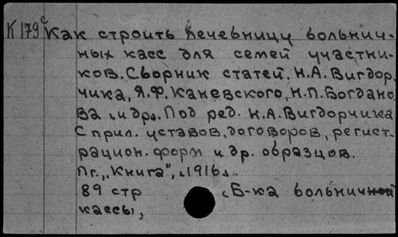 К 179 с Как строить лечебницу больнич-
ных касс для семей участни-
ков. Сборник статей. Н.А. Вигдор-
чика, Я.Ф. Каневского, Н.П. Богдано-
ва и др. Под ред. Н.А. Вигдорчика
С прил. уставов, договоров, регист-
рацион. форм и др. образцов.
Пг., „Книга", 1916.
89 стр Б-ка больничной
кассы,